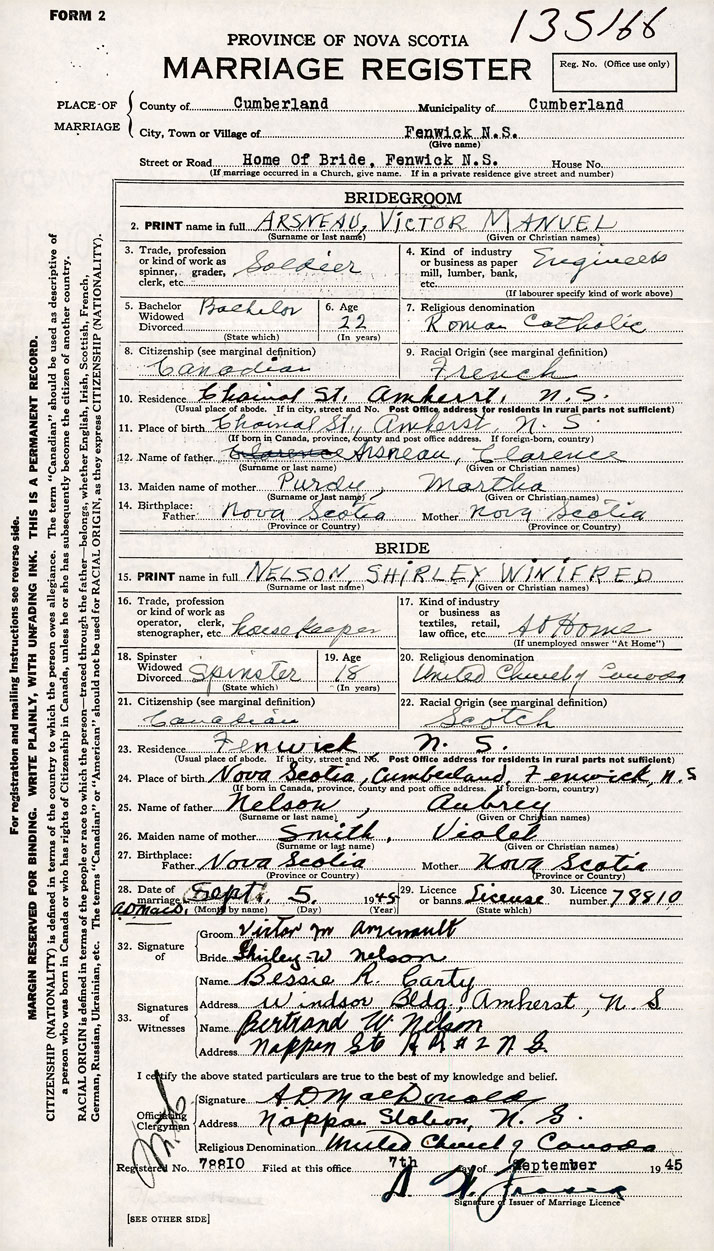 FORM 2
135166
PROVINCE OF NOVA SCOTIA
MARRIAGE REGISTER
Reg. No. (Office use only)
PLACE OF MARRIAGE
County of Cumberland Municipality of Cumberland
City, Town or Village of Fenwick N.S.
(Give name)
Street or Road Home Of Bride, Fenwick N.S. House No.
(If marriage occurred in a Church, give name. If in a private residence give street and number)
BRIDEGROOM
2. PRINT name in full ARSNEAU, VICTOR MANUEL
(Surname or last name) (Given or Christian names)
3. Trade, profession or kind of work as spinner, grader, clerk, etc. Soldier
4. Kind of industry or business as paper mill, lumber, bank, etc. Engineers
(If labourer specify kind of work above)
5. Bachelor Widowed Divorced Bachelor
(State which)
6. Age 22
(In years)
7. Religious denomination
Roman Catholic
8. Citizenship (see marginal definition)
Canadian
9. Racial Origin (see marginal definition)
French
10. Residence St. Amherst, N.S.
(Usual place of abode. If in city, street and No. Post Office address for residents in rural parts not sufficient)
11. Place of birth St., Amherst, N.S.
(If born in Canada, province, county and post office address. If foreign-born, country)
12. Name of father Clarence Arsneau, Clarence
(Surname or last name) (Given or Christian names)
13. Maiden name of mother Purdy, Martha
(Surname or last name) (Given or Christian names)
14. Birthplace: Father Nova Scotia Mother Nova Scotia
(Province or Country) (Province or Country)
BRIDE
15. PRINT name in full NELSON, SHIRLEY WINIFRED
(Surname or last name) (Given or Christian names)
16. Trade, profession or kind of work as operator, clerk, stenographer, etc. housekeeper
17. Kind of industry or business as textiles, retail, law office, etc. At Home
(If unemployed answer "At Home")
18. Spinster Widowed Divorced Spinster
(State which)
19. Age 18
(In years)
20. Religious denomination
United Church of Canada
21. Citizenship (see marginal definition)
Canadian
22. Racial Origin (see marginal definition)
Scotch
23. Residence Fenwick N. S.
(Usual place of abode. If in city, street and No. Post Office address for residents in rural parts not sufficient)
24. Place of birth Nova Scotia, Cumberland, Fenwick, N.S
(If born in Canada, province, county and post office address. If foreign-born, country)
25. Name of father Nelson, Aubrey
(Surname or last name) (Given or Christian names)
26. Maiden name of mother Smith, Violet
(Surname or last name) (Given or Christian names)
27. Birthplace: Father Nova Scotia Mother Nova Scotia
(Province or Country) (Province or Country)
28. Date of marriage Sept. 5. 1945
(Month by name) (Day) (Year)
29. Licence or banns License
(State which)
30. Licence number 78810
32. Signature of
Groom Victor M Arsenault
Bride Shirley W Nelson
33. Signatures of Witnesses
Name Bessie R Carty
Address Windsor Bldg, Amherst, N S
Name Bertrand W Nelson
Address Nappan Sta R R # 2 N S.
I certify the above stated particulars are true to the best of my knowledge and belief.
Officiating Clergyman
Signature A D MacDonald
Address Nappan Station, N. S.
Religious Denomination United Church of Canada
Registered No. 78810 Filed at this office 7th day of September 1945
Fraser
Signature of Issuer of Marriage Licence
[SEE OTHER SIDE]
For registration and mailing instructions see reverse side.
MARGIN RESERVED FOR BINDING. WRITE PLAINLY, WITH UNFADING INK. THIS IS A PERMANENT RECORD.
CITIZENSHIP (NATIONALITY) is defined in terms of the country to which the person owes allegiance. The term "Canadian" should be used as descriptive of
a person who was born in Canada or who has rights of Citizenship in Canada, unless he or she has subsequently become the citizen of another country.
RACIAL ORIGIN is defined in terms of the people or race to which the person—traced through the father—belongs, whether English, Irish, Scottish, French,
German, Russian, Ukrainian, etc. The terms "Canadian" or "American" should not be used for RACIAL ORIGIN, as they express CITIZENSHIP (NATIONALITY).